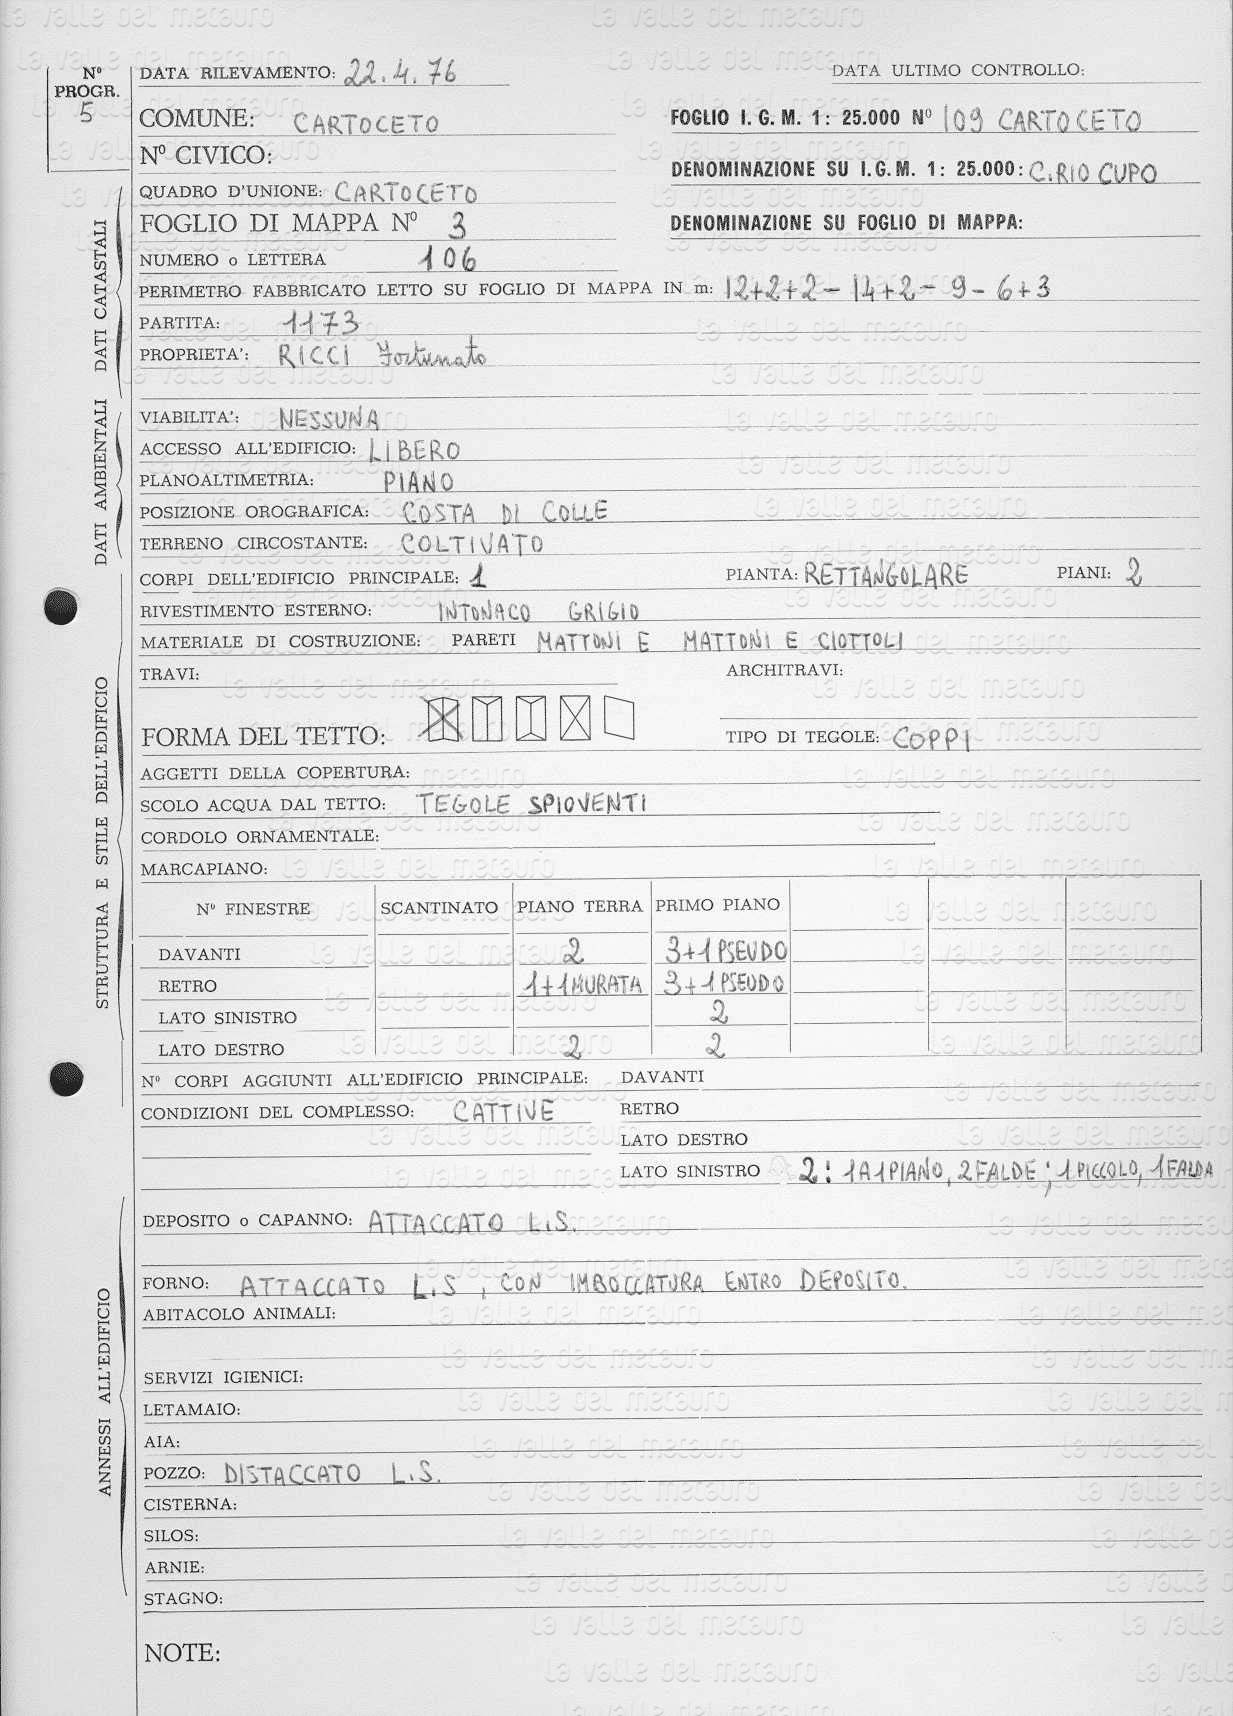 Nº PROGR. 5
DATA RILEVAMENTO: 22.4.76 DATA ULTIMO CONTROLLO:
COMUNE: CARTOCETO FOGLIO I.G.M. 1: 25.000 Nº 109 CARTOCETO
Nº CIVICO: DENOMINAZIONE SU I.G.M. 1: 25.000: C.RIO CUPO
QUADRO D'UNIONE: CARTOCETO
FOGLIO DI MAPPA Nº 3 DENOMINAZIONE SU FOGLIO DI MAPPA:
NUMERO o LETTERA 106
PERIMETRO FABBRICATO LETTO SU FOGLIO DI MAPPA IN m: 12+2+2-14+2-9-6+3
PARTITA: 1173
PROPRIETA': RICCI Fortunato
DATI CATASTALI
VIABILITA': NESSUNA
ACCESSO ALL'EDIFICIO: LIBERO
PLANOALTIMETRIA: PIANO
POSIZIONE OROGRAFICA: COSTA DI COLLE
TERRENO CIRCOSTANTE: COLTIVATO
DATI AMBIENTALI
CORPI DELL'EDIFICIO PRINCIPALE: 1 PIANTA: RETTANGOLARE PIANI: 2
RIVESTIMENTO ESTERNO: INTONACO GRIGIO
MATERIALE DI COSTRUZIONE: PARETI MATTONI E MATTONI E CIOTTOLI
TRAVI: ARCHITRAVI:
FORMA DEL TETTO: TIPO DI TEGOLE: COPPI
AGGETTI DELLA COPERTURA:
SCOLO ACQUA DAL TETTO: TEGOLE SPIOVENTI
CORDOLO ORNAMENTALE:
MARCAPIANO:
Nº FINESTRE SCANTINATO PIANO TERRA PRIMO PIANO
DAVANTI 2 3+1 PSEUDO
RETRO 1+1 MURATA 3+1 PSEUDO
LATO SINISTRO 2
LATO DESTRO 2 2
STRUTTURA E STILE DELL'EDIFICIO
Nº CORPI AGGIUNTI ALL'EDIFICIO PRINCIPALE: DAVANTI
CONDIZIONI DEL COMPLESSO: CATTIVE RETRO
LATO DESTRO
LATO SINISTRO 2: 1 A 1 PIANO, 2 FALDE; 1 PICCOLO, 1 FALDA
DEPOSITO o CAPANNO: ATTACCATO L.S.
FORNO: ATTACCATO L.S, CON IMBOCCATURA ENTRO DEPOSITO.
ABITACOLO ANIMALI:
SERVIZI IGIENICI:
LETAMAIO:
AIA:
POZZO: DISTACCATO L.S.
CISTERNA:
SILOS:
ARNIE:
STAGNO:
ANNESSI ALL'EDIFICIO
NOTE:
la valle del metauro